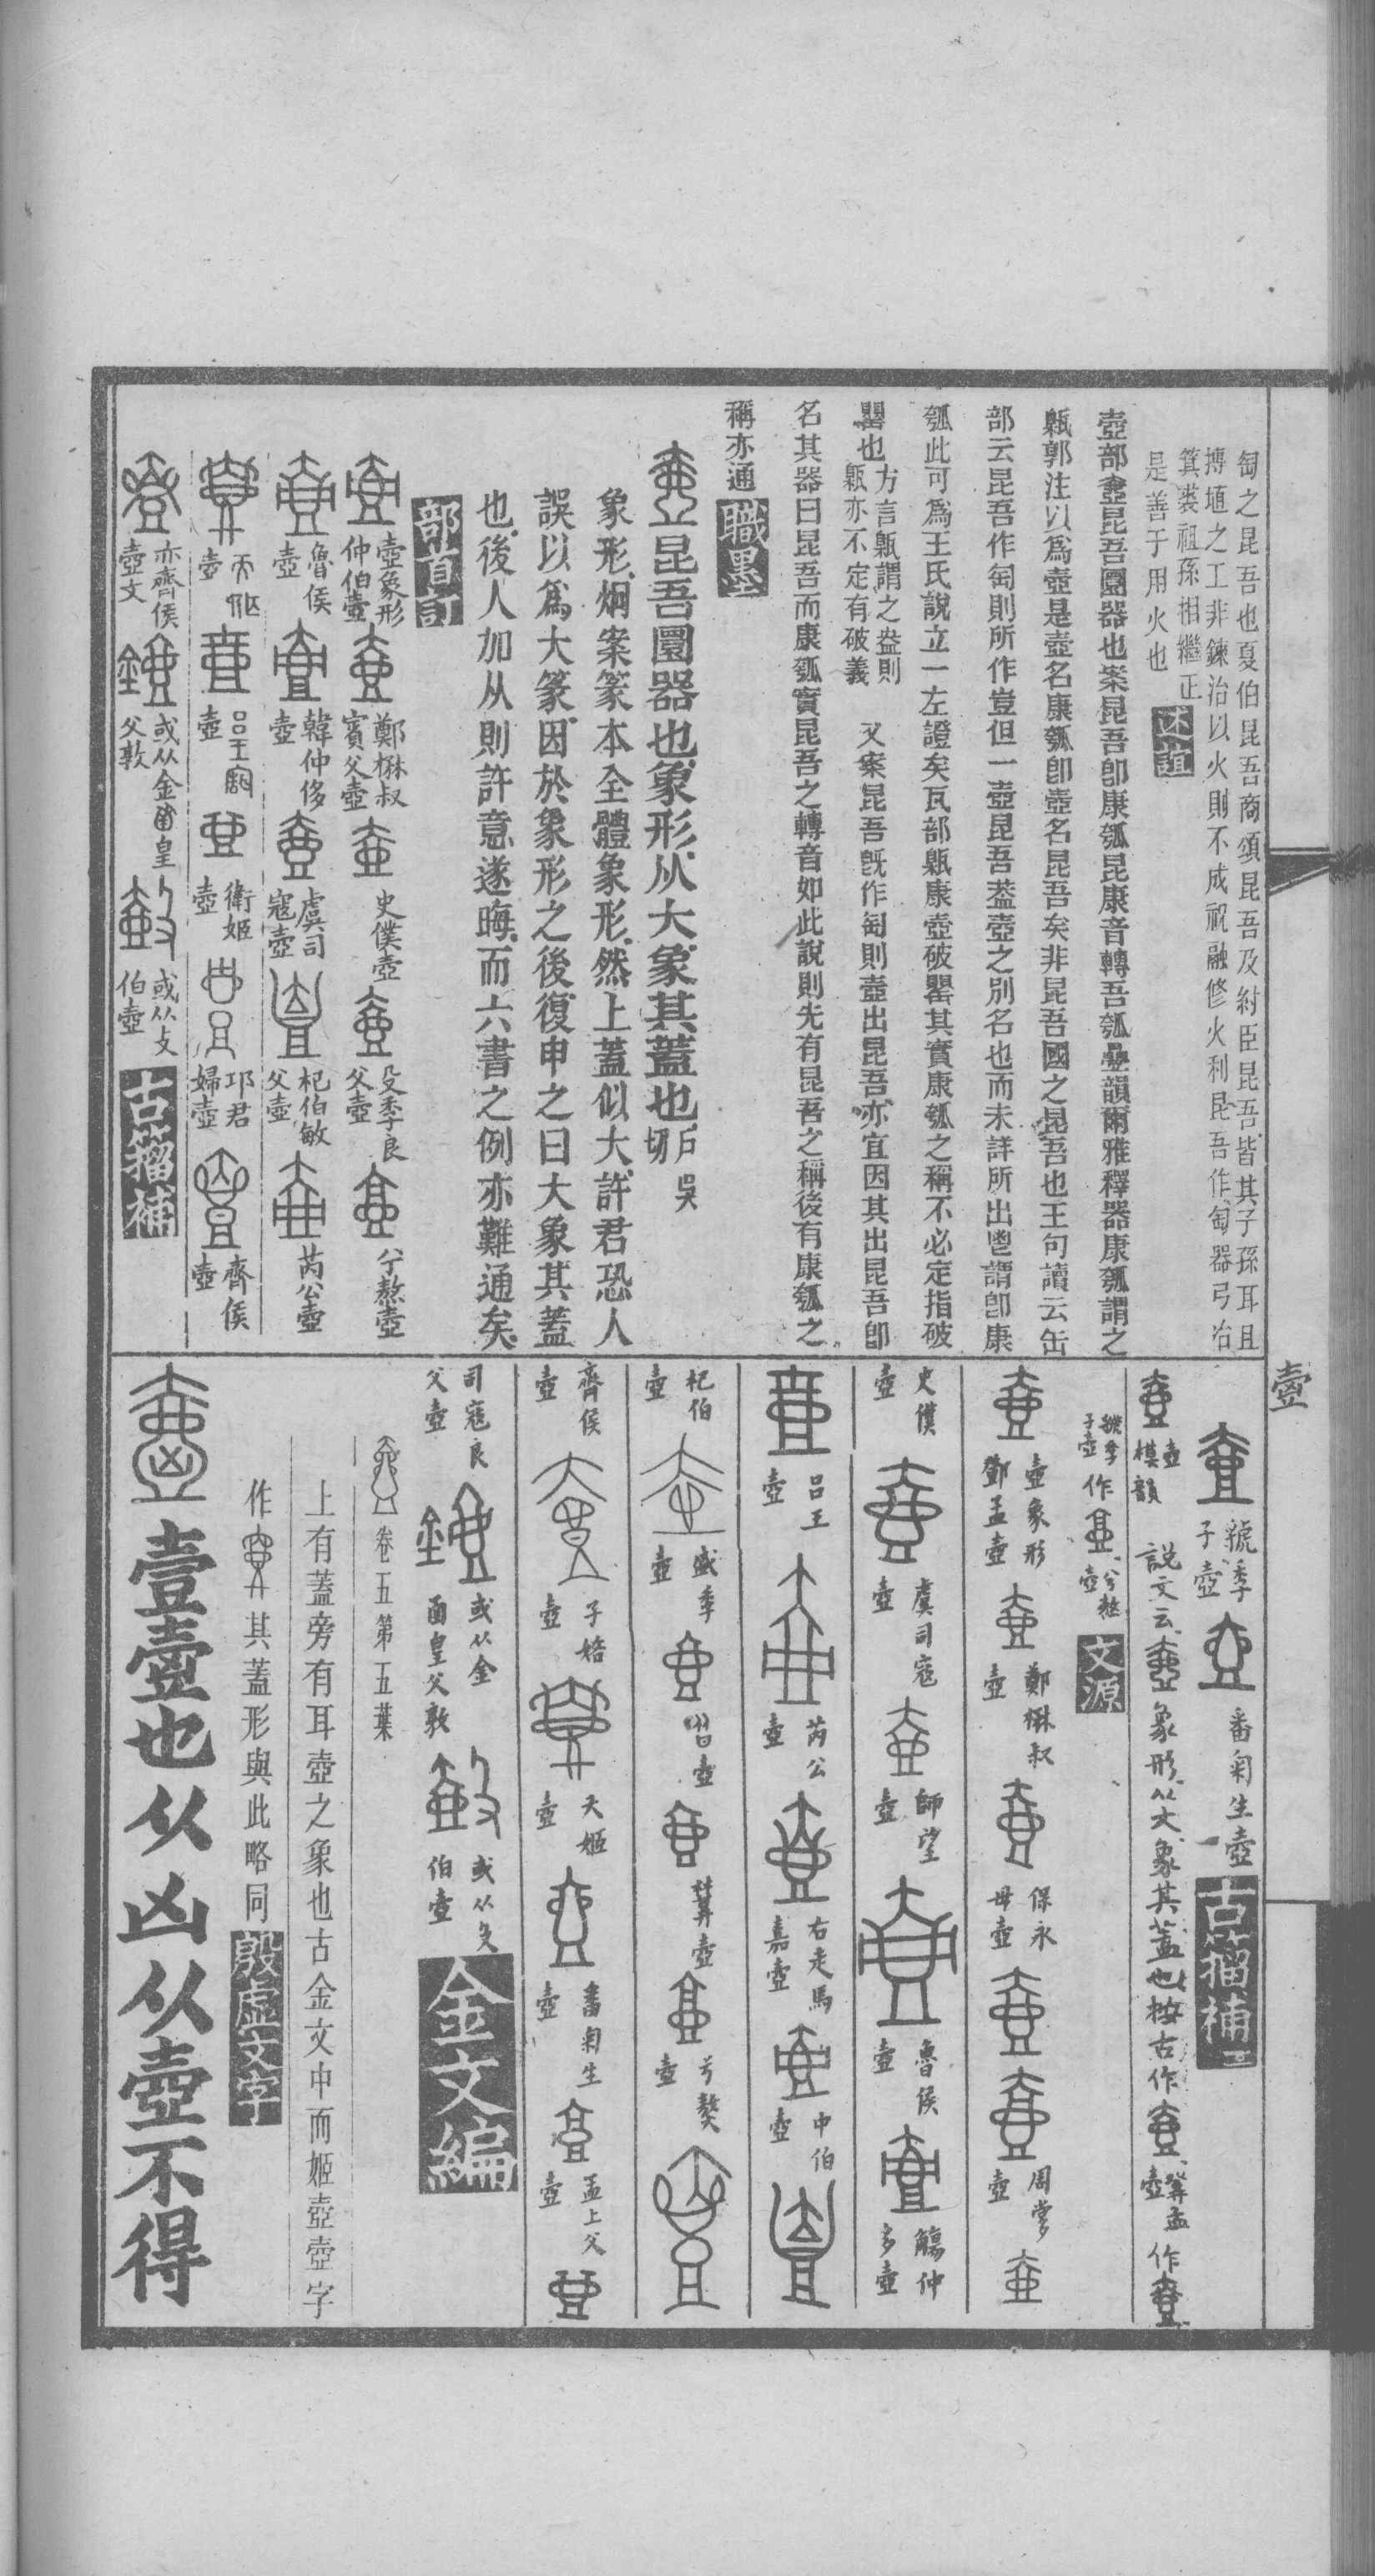 匋之昆吾也夏伯昆吾商頌昆吾及紂臣昆吾皆其子孫耳且
摶埴之工非鍊冶以火則不成祝融修火利昆吾作匋器弓冶
箕裘祖孫相繼正
是善于用火也
述誼
壺部壺昆吾圜器也案昆吾卽康瓠昆康音轉吾瓠疊韻爾雅釋器康瓠謂之
甈郭注以爲壺是壺名康瓠卽壺名昆吾矣非昆吾國之昆吾也王句讀云缶
部云昆吾作匋則所作豈但一壺昆吾葢壺之別名也而未詳所出鬯謂卽康
瓠此可爲王氏說立一左證矣瓦部甈康壺破罌其實康瓠之稱不必定指破
罌也
方言甈謂之盎則
甈亦不定有破義
又案昆吾旣作匋則壺出昆吾亦宜因其出昆吾卽
名其器曰昆吾而康瓠實昆吾之轉音如此說則先有昆吾之稱後有康瓠之
稱亦通
職墨
昆吾圜器也象形从大象其蓋也
戶吳
切
象形炯案篆本全體象形然上蓋似大許君恐人
誤以爲大篆因於象形之後復申之曰大象其蓋
也後人加从則許意遂晦而六書之例亦難通矣
部首訂
壺象形
仲伯壺
鄭楙叔
賓父壺
史僕壺
殳季良
父壺
兮熬壺
魯侯
壺
韓仲侈
壺
虞司
寇壺
杞伯敏
父壺
芮公壺
壺
呂王
壺
衛姬
壺
邛君
婦壺
齊侯
壺
亦齊侯
壺文
或从金皇
父敦
或从攴
伯壺
古籀補
壺
虢季
子壺
番匊生壺
古籀補二
壺
模韻
說文云
象形从大象其蓋也按古作
孟
壺
作
虢季
子壺
作
兮熬
壺
文源
壺象形
鄧孟壺
鄭楙叔
壺
保永
母壺
周
壺
史僕
壺
虞司寇
壺
師望
壺
魯侯
壺
觴仲
多壺
呂王
壺
芮公
壺
右走馬
嘉壺
中伯
壺
杞伯
壺
盛季
壺
壺
壺
兮熬
壺
齊侯
壺
子姞
壺
天姬
壺
番匊生
壺
孟上父
壺
司寇良
父壺
或从金
圅皇父敦
或从攵
伯壺
金文編
卷五第五葉
上有蓋旁有耳壺之象也古金文中而姬壺壺字
作
其蓋形與此略同
殷虛文字
壹壺也从凶从壺不得